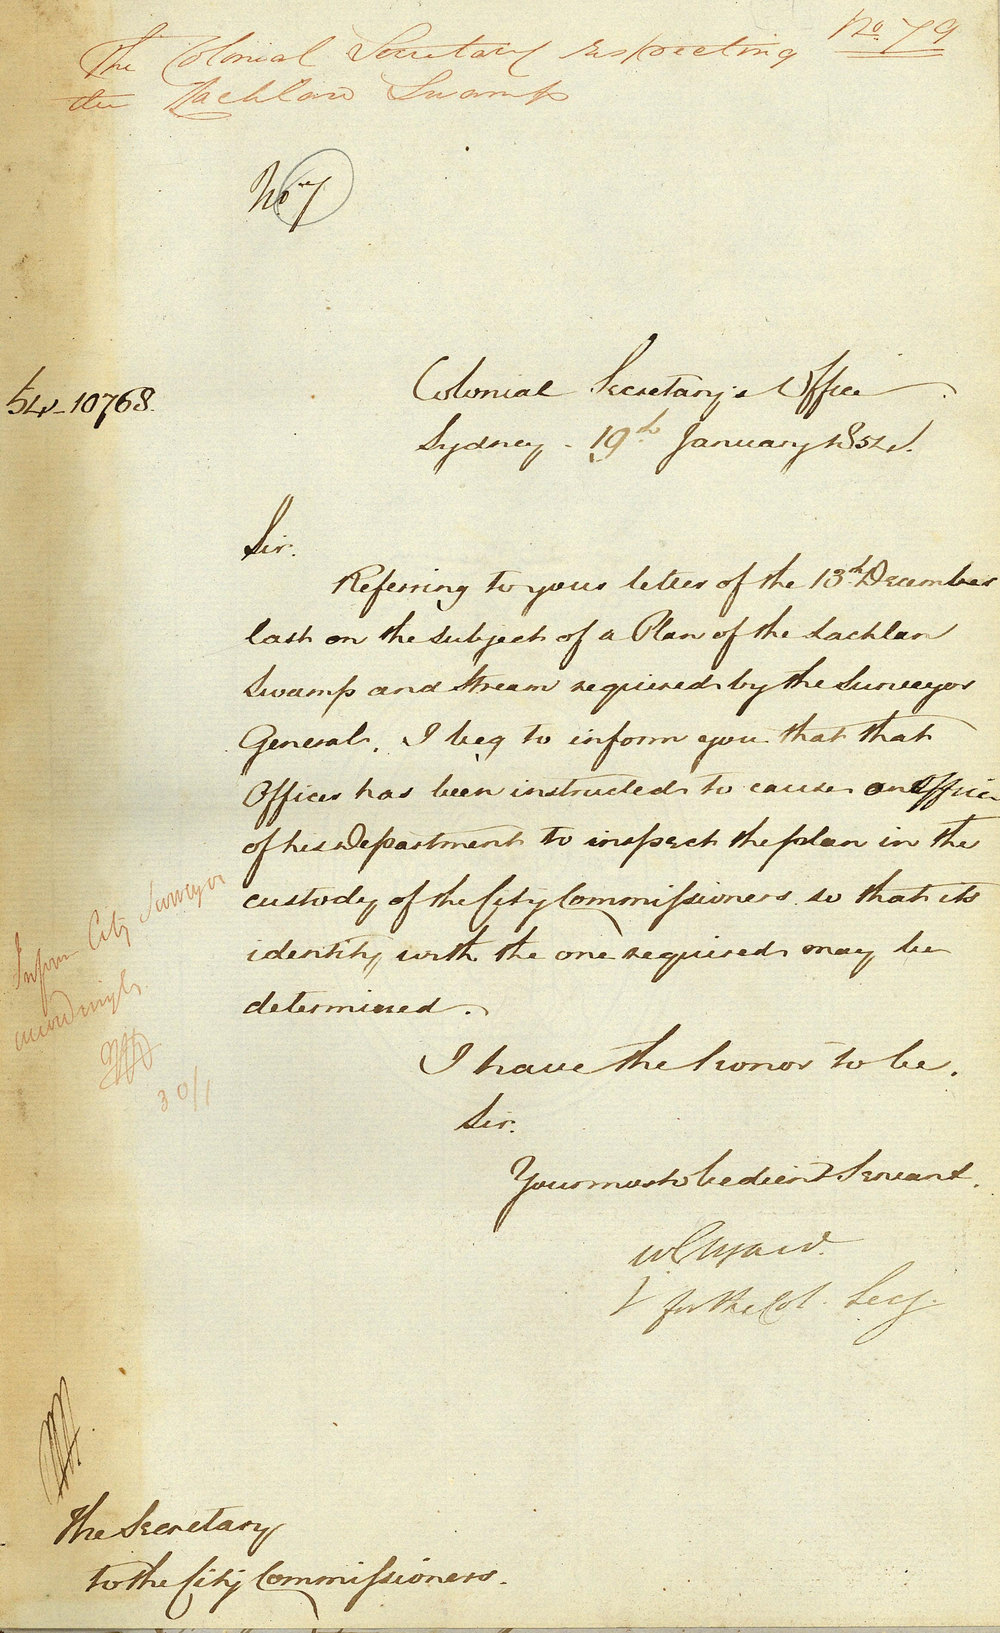 No. 79
The Colonial Secretary respecting
the Lachlan Swamp
No 7
54-10768.
Colonial Secretary's Office
Sydney - 19th January 1854.
Sir.
Referring to your letter of the 13th December
last on the subject of a Plan of the Lachlan
Swamp and Stream required by the Surveyor
General, I beg to inform you that that
Officer has been instructed to cause an Officer
of his Department to inspect the plan in the
custody of the City Commissioners so that its
identity with the one required may be
determined.
Inform City Surveyor
accordingly.
30/1
I have the honor to be.
Sir.
Your most obedient Servant.
for the Col. Secy.
The Secretary
to the City Commissioners.